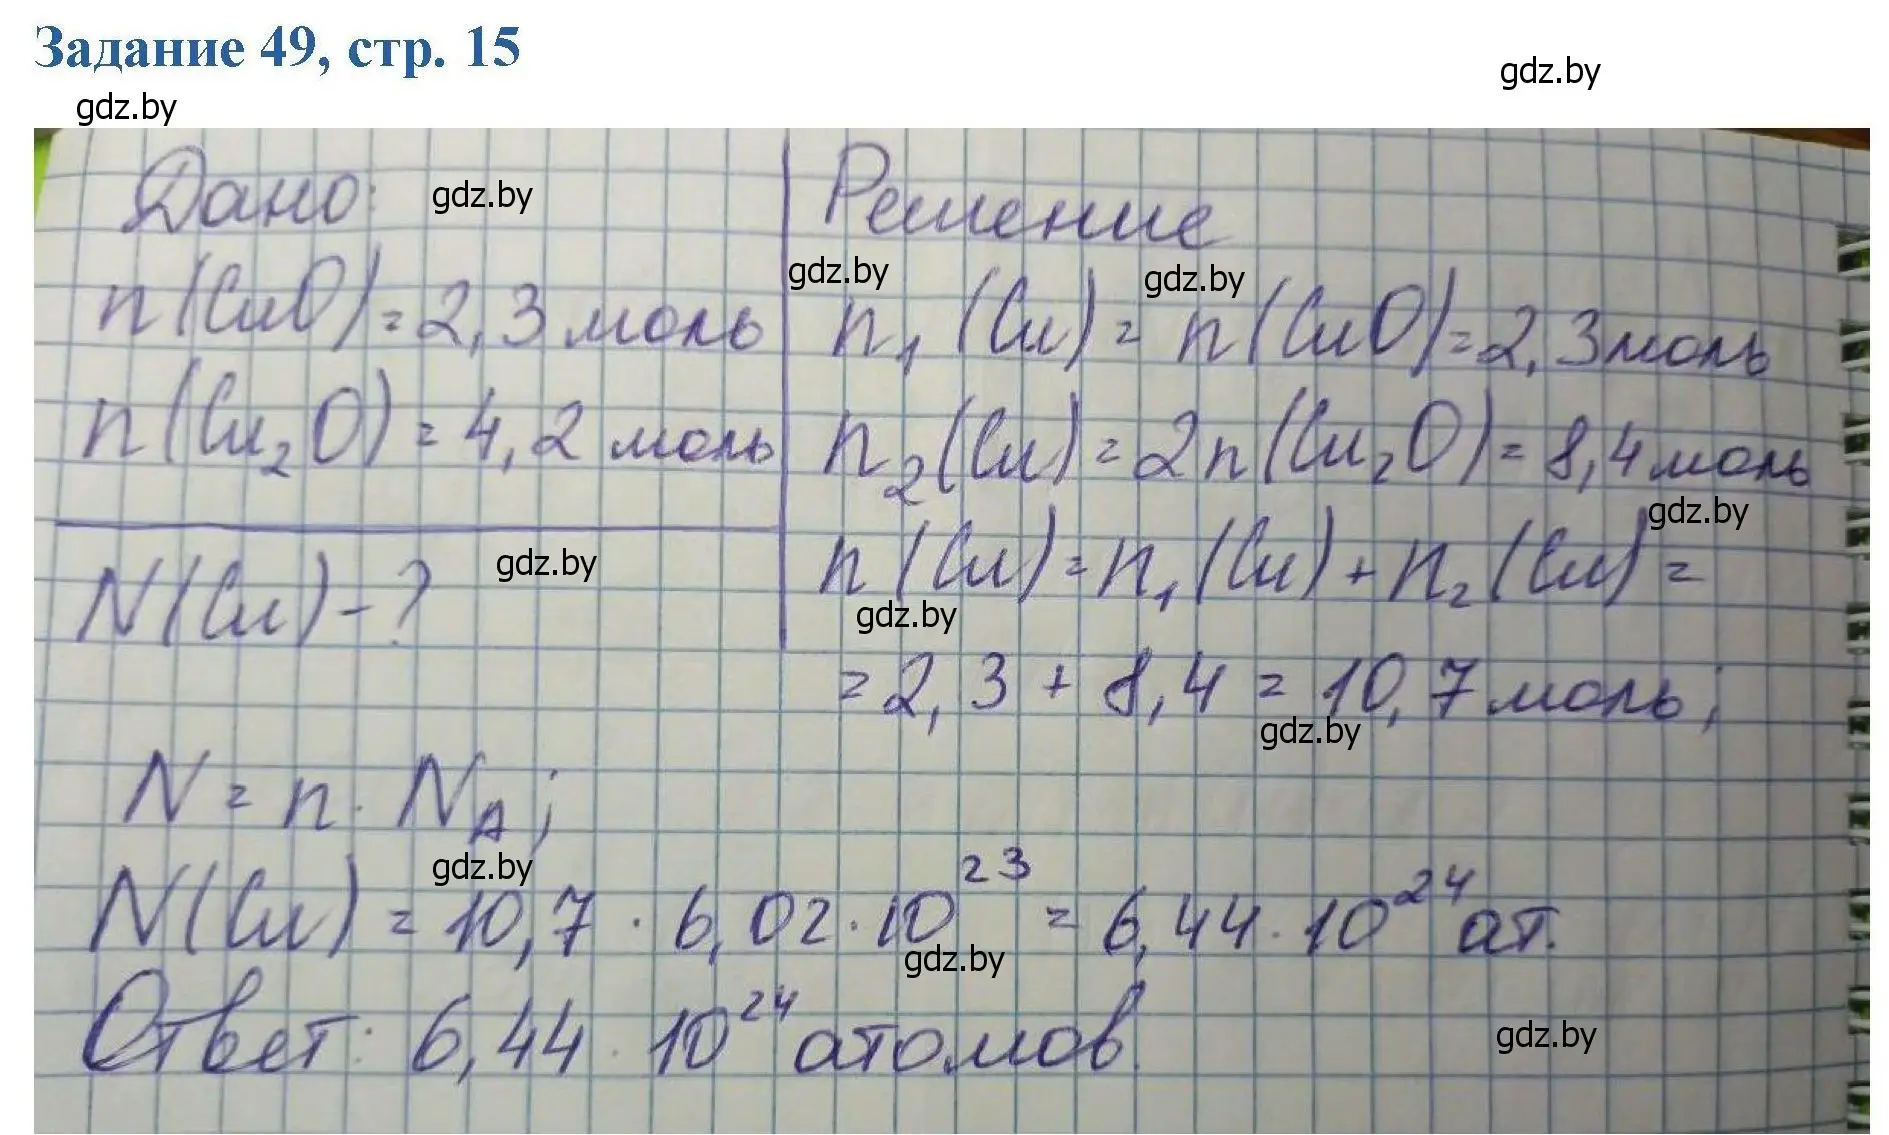 Задание 49, стр. 15
gdz.by
gdz.by
Дано:
gdz.by
n(CuO)=2,3 моль
n(Cu₂O)=4,2 моль
N(Cu)-?
gdz.by
Решение
gdz.by
gdz.by
n₁(Cu)= n(CuO)=2,3 моль
n₂(Cu)=2n(Cu₂O)=8,4 моль
gdz.by
n(Cu)=n₁(Cu)+n₂(Cu)=
gdz.by
=2,3+8,4=10,7 моль;
gdz.by
N=n·N_A;
gdz.by
N(Cu)=10,7·6,02·10²³=6,44·10²⁴ ат.
gdz.by
Ответ: 6,44·10²⁴ атомов.
gdz.by